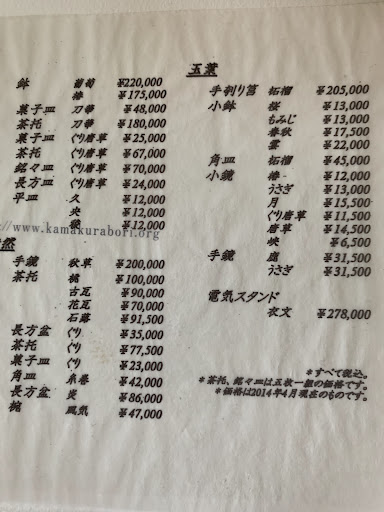 鉢 葡萄 ¥220,000
椿 ¥175,000
菓子皿 刀華 ¥48,000
茶托 刀華 ¥180,000
菓子皿 ぐり唐草 ¥25,000
茶托 ぐり唐草 ¥67,000
銘々皿 ぐり唐草 ¥70,000
長方皿 ぐり唐草 ¥24,000
平皿 久 ¥12,000
央 ¥12,000
¥12,000
//www.kamakurabori.org
然
手鏡 秋草 ¥200,000
茶托 橘 ¥100,000
古瓦 ¥90,000
花瓦 ¥70,000
石蕗 ¥91,500
長方盆 ぐり ¥35,000
茶托 ぐり ¥77,500
菓子皿 ぐり ¥23,000
角皿 糸巻 ¥42,000
長方盆 ¥86,000
椀 風気 ¥47,000
玉葉
手刳り筥 柘榴 ¥205,000
小鉢 桜 ¥13,000
もみじ ¥13,000
春秋 ¥17,500
雲 ¥22,000
角皿 柘榴 ¥45,000
小鏡 椿 ¥12,000
うさぎ ¥13,000
月 ¥15,500
ぐり唐草 ¥11,500
唐草 ¥14,500
¥6,500
手鏡 ¥31,500
うさぎ ¥31,500
電気スタンド
衣文 ¥278,000
*すべて税込。
*茶托、銘々皿は五枚一組の価格です。
*価格は2014年4月現在のものです。